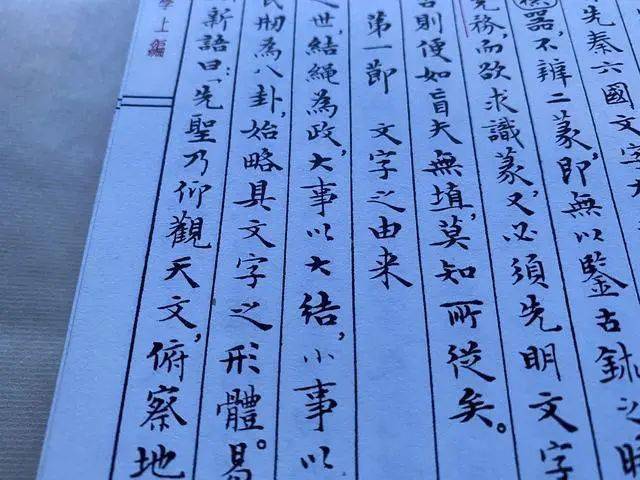 先秦六國文字
器,不辨二篆,即無以鑒古鉥之時
務,而欲求識篆,又必須先明文字
則便如盲夫無埴,莫知所從矣。
第一節 文字之由来
之世,結繩為政,大事以大結,小事以
氏刱為八卦,始略具文字之形體。易
新語曰:「先聖乃仰觀天文,俯察地
學上編